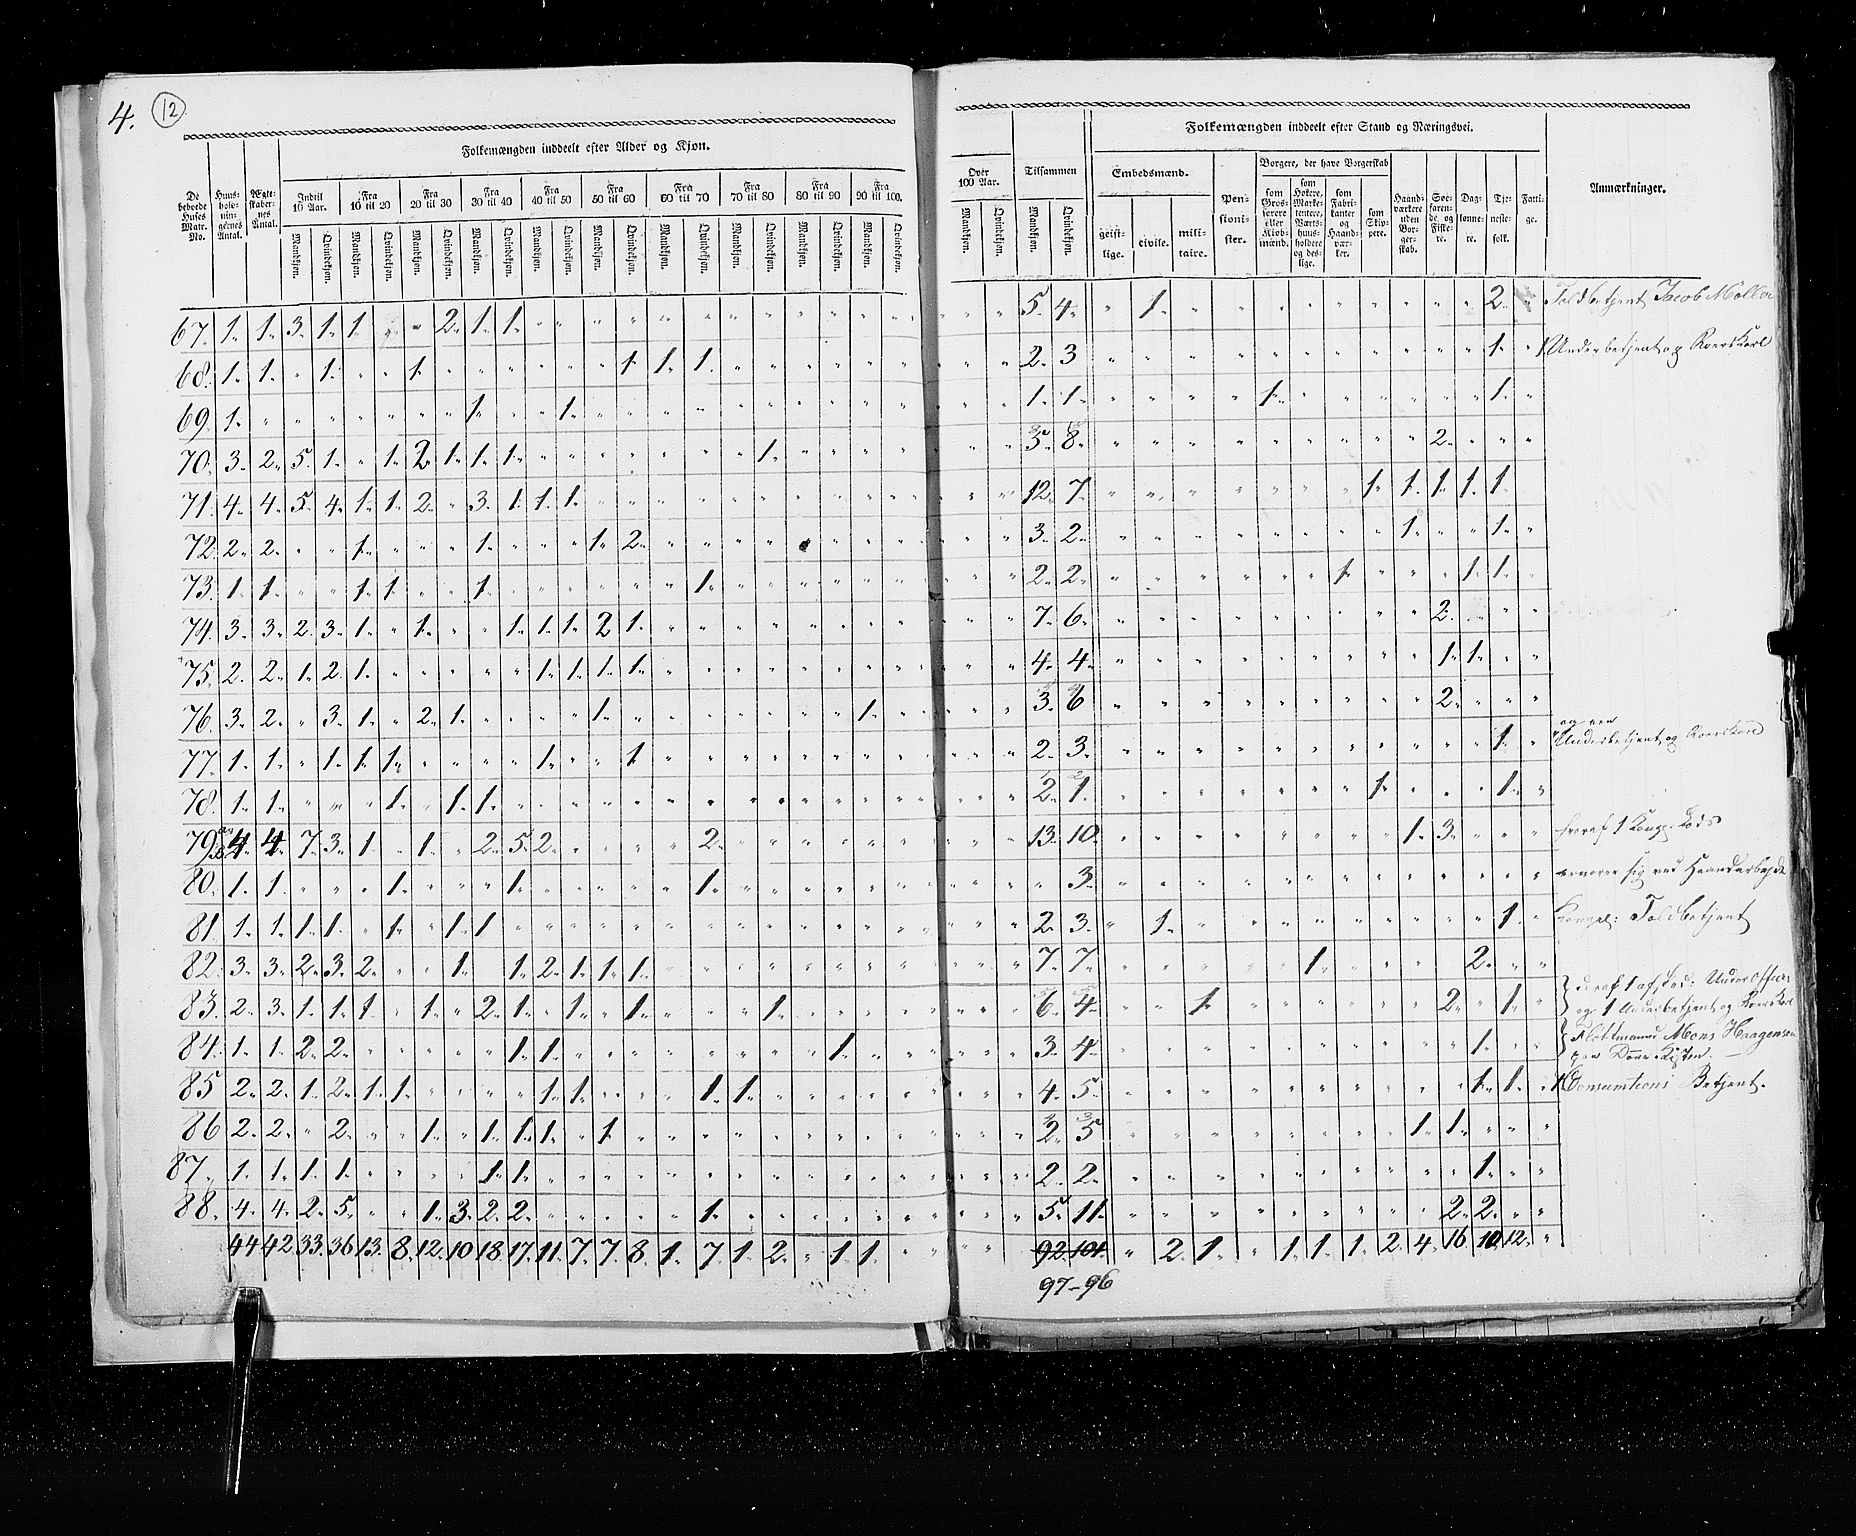 4. 12
Folkemængden inddeelt efter Alder og Kjøn.
De beboede Huses Matr. No.
Huusholdningernes Antal.
Ægteskabernes Antal.
Indtil 10 Aar.
Fra 10 til 20
Fra 20 til 30
Fra 30 til 40
Fra 40 til 50
Fra 50 til 60
Fra 60 til 70
Fra 70 til 80
Fra 80 til 90
Fra 90 til 100.
Mandkjøn. Qvindekjøn.
Over 100 Aar.
Tilsammen
Folkemængden inddeelt efter Stand og Næringsvei.
Embedsmænd.
geistlige. civile. militaire.
Pensionister.
Borgere, der have Borgerskab
som Grosserere eller Kjøbmænd.
som Høkere, Marketentere, Værtshuusholdere og deslige.
som Fabrikanter og Haandværker.
som Skippere.
Haandværkere uden Borgerskab.
Søefarende og Fiskere.
Daglønnere.
Tjenestefolk.
Fattige.
Anmærkninger.
67. 1. 1. 3. 1. 1. " " 2. 1. 1. 5. 4. " 1. 2. Toldbetjent Jacob Møller
68. 1. 1. " 1. " " 1. 1. 1. 1. 2. 3 1. Underbetjent og Roerskarl
69. 1. " 1. 1. 1. 1. 1. 1.
70. 3. 2. 5. 1. " 1. 2. 1. 1. 1. 1. 5. 8. 2.
71. 4. 4. 5. 4. 1. 1. 2. " 3. 1. 1. 1. 12. 7. 1. 1. 1. 1. 1.
72. 2. 2. " " 1. 1. 1. 2. 3. 2. 1. 1.
73. 1. 1. " " 1. 1. 1. 1. 2. 2. 1. 1. 1.
74. 3. 3. 2. 3. 1. " 1. 1. 1. 1. 2. 1. 7. 6. 2.
75. 2. 2. 1. 2. 1. 1. 1. 1. 1. 4. 4. 1. 1.
76. 3. 2. " 3. 1. " 2. 1. 1. 1. 3. 6 2.
77. 1. 1. " 1. 1. 1. 1. 1. 2. 3. 1. Underbetjent og Roerskarl
78. 1. 1. 1. 1. 1. 2. 1. 1. 1.
79 4. 4. 7. 3. 1. 1. 2. 5. 2. 2. 13. 10. 1. 3. hvoraf 1 Kongl: Lods
80. 1. 1. 1. 1. 1. 3. ernærer sig ved Haandarbejde
81. 1. 1. 1. 1. 1. 1. 1. 2. 3. 1. 1. Kongel: Toldbetjent
82. 3. 3. 2. 3. 2. 1. 1. 2. 1. 1. 1. 7. 7. 1. 2.
83. 2. 3. 1. 1. 1. 1. 2. 1. 1. 1. 1. 6. 4. 1. 2. 1. deraf 1 Underofficer
og 1 Underbetjent og Roerskarl
84. 1. 1. 2. 2. 1. 1. 1. 3. 4. 1. Mons Haagensen
85 2. 2. 1. 2. 1. 1. 1. 1. 1. 1. 4. 5. 1. 1. Consumtions Betjent.
86 2. 2. " 2. 1. 1. 1. 1. 1. 2. 5 1. 1.
87. 1. 1. 1. 1. 1. 1. 2. 2. 1.
88. 4. 4. 2. 5. 1. 3. 2. 2. 1. 5. 11. 2. 2.
44 42. 33. 36 13. 8. 12. 10 18. 17. 11. 7. 7. 8. 1. 7. 1. 2. " 1. 1. 92. 101. " 2. 1. " 1. 1. 1. 2. 4. 16. 10. 12. "
97-96